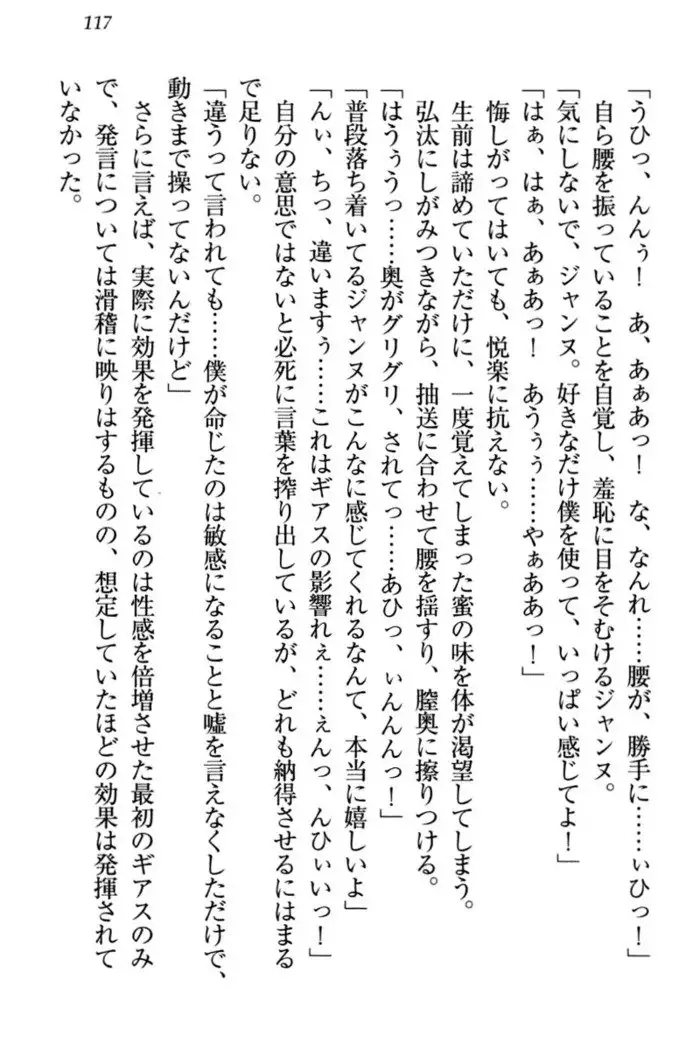 117
「うひっ、んんぅ！　あ、あぁあっ！　な、なんれ……腰が、勝手に……ぃひっ！」
　自ら腰を振っていることを自覚し、羞恥に目をそむけるジャンヌ。
「気にしないで、ジャンヌ。好きなだけ僕を使って、いっぱい感じてよ！」
「はぁ、はぁ、あぁあっ！　あうぅぅ……やぁああっ！」
　悔しがってはいても、悦楽に抗えない。
　生前は諦めていただけに、一度覚えてしまった蜜の味を体が渇望してしまう。
　弘汰にしがみつきながら、抽送に合わせて腰を揺すり、膣奥に擦りつける。
「はうぅうっ……奥がグリグリ、されてっ……あひっ、ぃんんんっ！」
「普段落ち着いてるジャンヌがこんなに感じてくれるなんて、本当に嬉しいよ」
「んぃ、ちっ、違いますぅ……これはギアスの影響れぇ……ぇんっ、んひぃいっ！」
　自分の意思ではないと必死に言葉を搾り出しているが、どれも納得させるにはまる
で足りない。
「違うって言われても……僕が命じたのは敏感になることと嘘を言えなくしただけで、
動きまで操ってないんだけど」
　さらに言えば、実際に効果を発揮しているのは性感を倍増させた最初のギアスのみ
で、発言については滑稽に映りはするものの、想定していたほどの効果は発揮されて
いなかった。